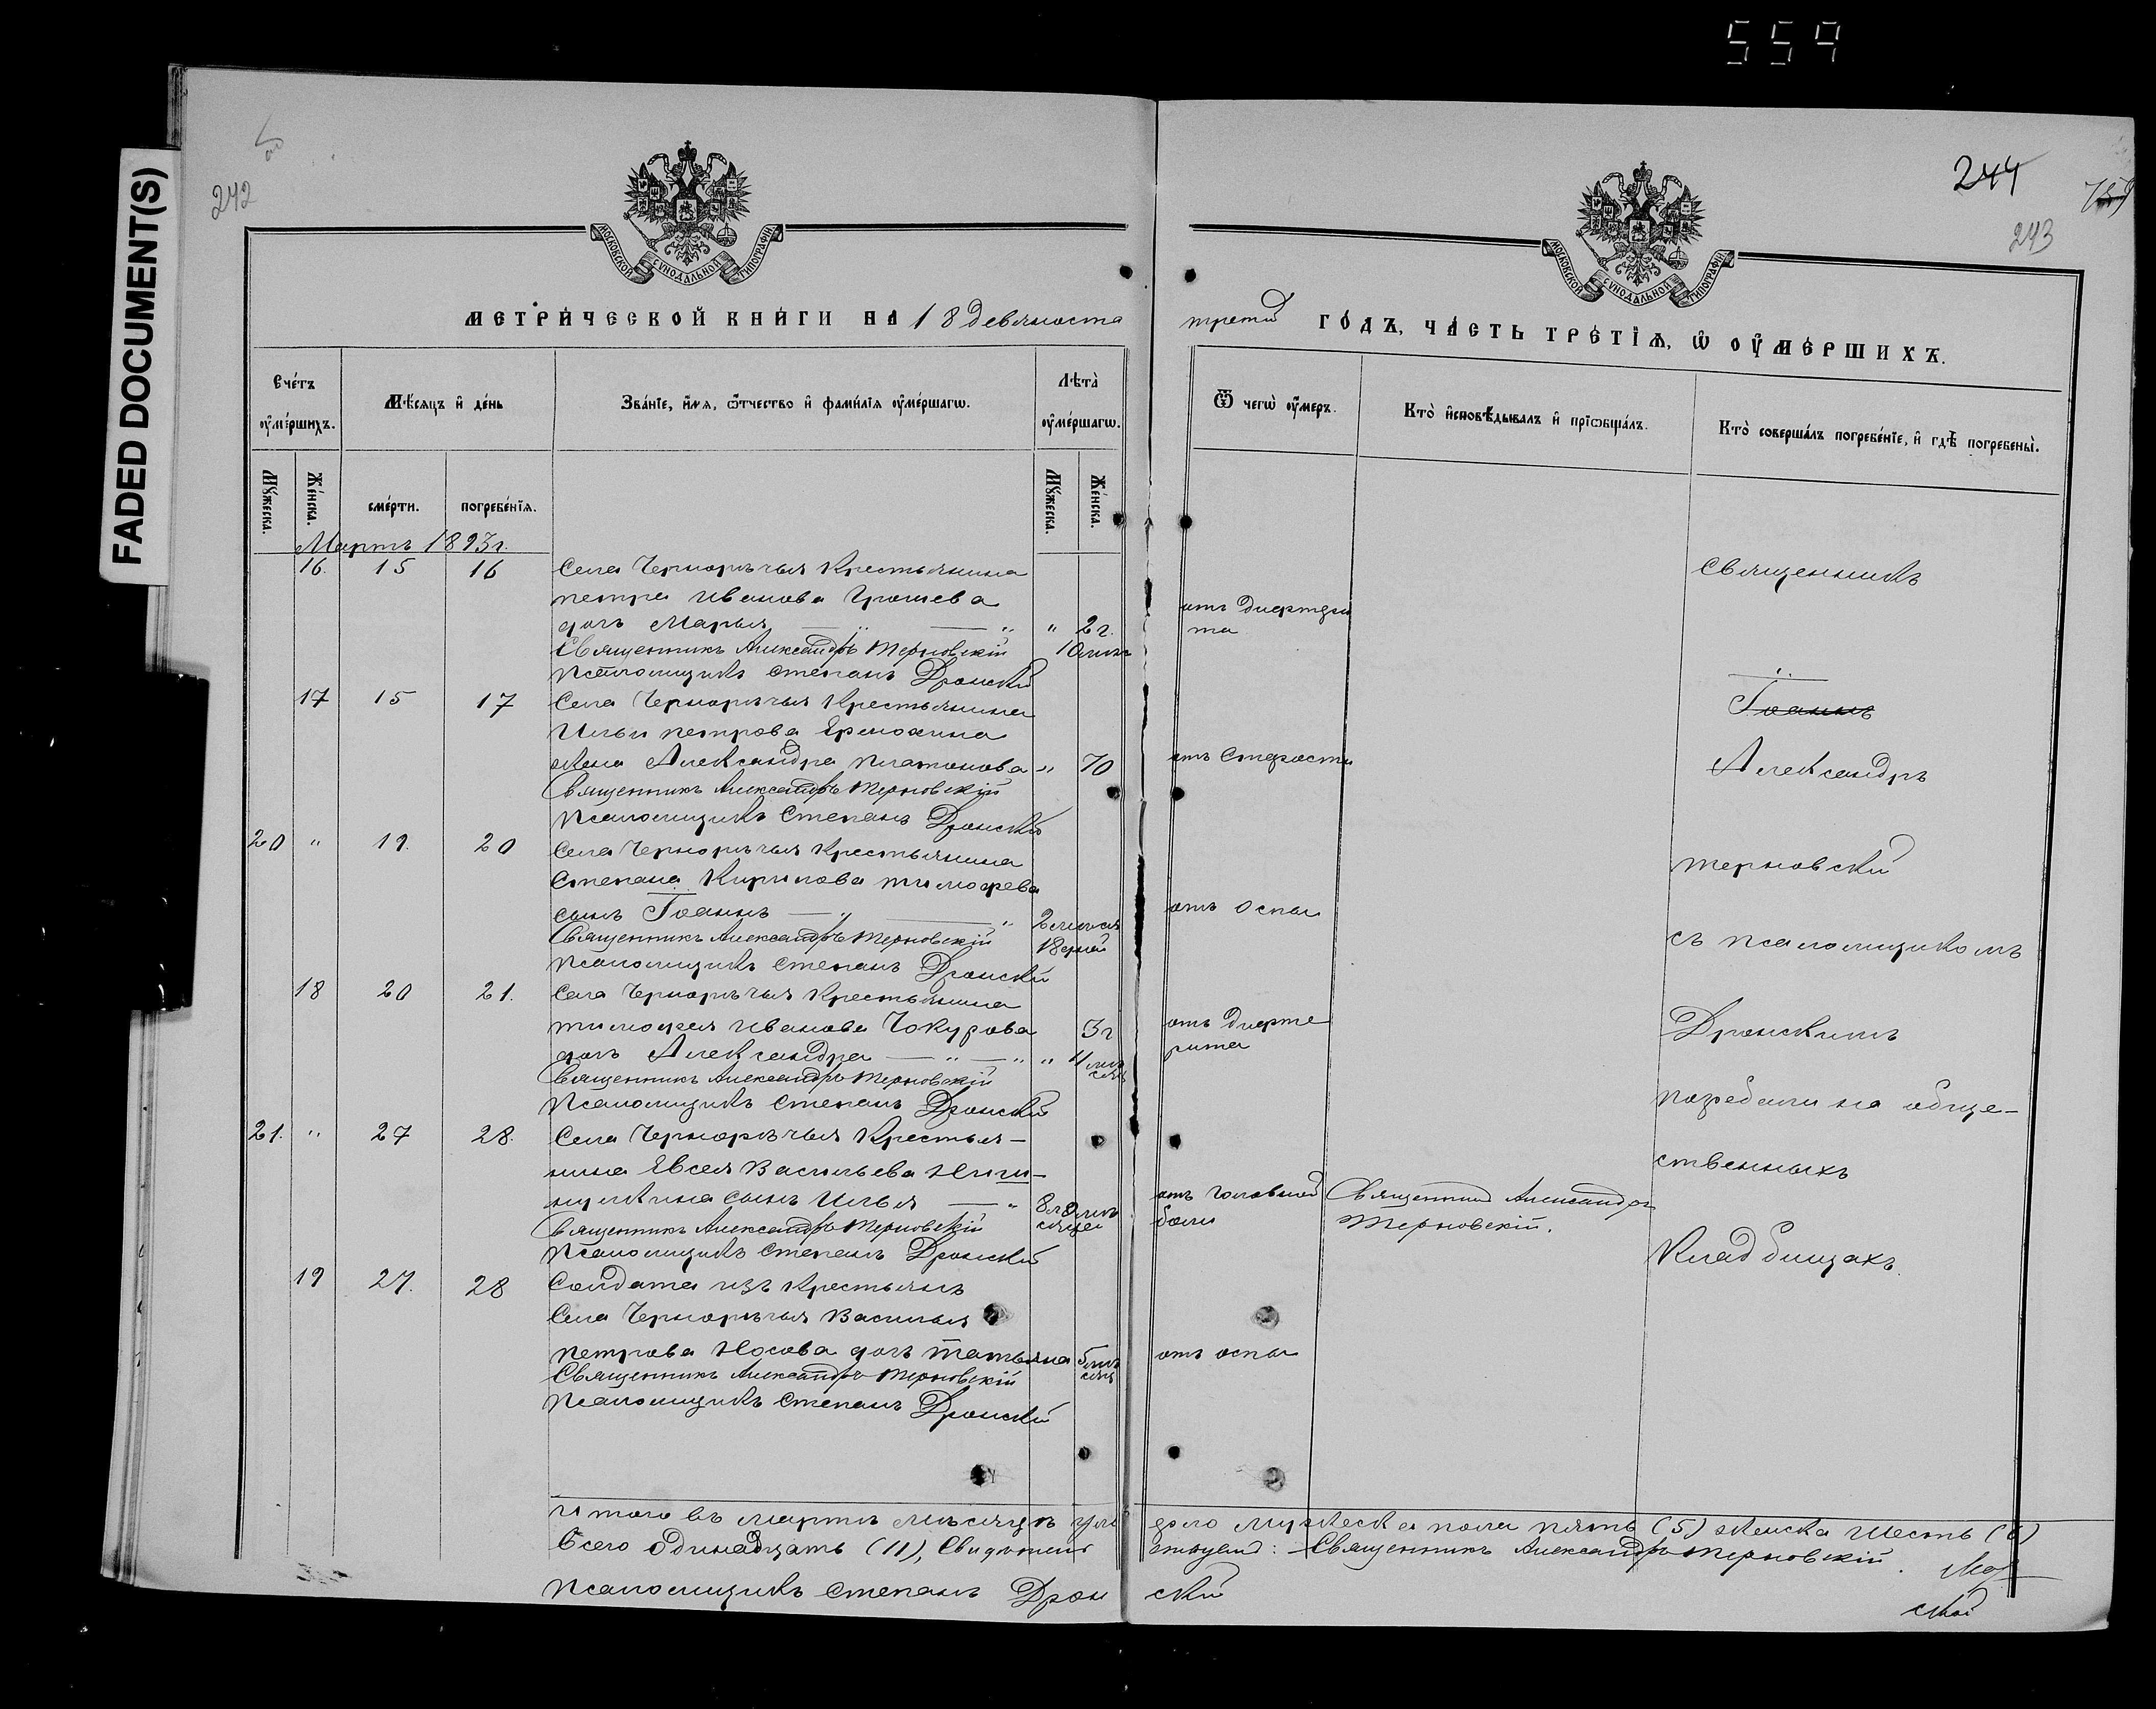 559
FADED DOCUMENT(S)
242
244
243
МОСКОВСКОЙ СѴНОДАЛЬНОЙ ТИПОГРАФІИ
МОСКОВСКОЙ СѴНОДАЛЬНОЙ ТИПОГРАФІИ
МЕТРИЧЕСКОЙ КНИГИ НА 18 девяноста третій ГОДЪ, ЧАСТЬ ТРЕТІЯ, Ѡ ОУМЕРШИХЪ.
Счетъ оумершихъ.
Мѣсяцъ и день
Званіе, имя, ѿчество и фамилія оумершагѡ.
Лѣта оумершагѡ.
Ѿ чегѡ оумеръ.
Кто исповѣдывалъ и пріѡбщалъ.
Кто совершалъ погребеніе, и гдѣ погребены.
Мужеска.
Женска.
смерти.
погребенія.
Мужеска.
Женска.
Мартъ 1893 г.
16. 15 16 Села Чернорѣчья Крестьянина
Петра Иванова Грошева
дочь Марья — " — " " 2 г.
10 мѣс
отъ Дифтери
та
Священникъ Александръ Терновскій
Псаломщикъ Степанъ Дронскій
17 15 17 Села Чернорѣчья Крестьянина
Ильи Петрова Ермохина
жена Александра Платонова " 70 отъ Старости
Священникъ Александръ Терновскій
Псаломщикъ Степанъ Дронскій
20 " 19. 20 Села Чернорѣчья Крестьянина
Степана Кирилова Тимофеева
сынъ Іоаннъ — " — " 2 мѣсяц
18 дней
отъ Оспы
Священникъ Александръ Терновскій
Псаломщикъ Степанъ Дронскій
18 20 21. Села Чернорѣчья Крестьянина
Тимофея Иванова Чокурова 3 г отъ Дифте
дочь Александра — " — " " 4 мѣ
сяц
рита
Священникъ Александръ Терновскій
Псаломщикъ Степанъ Дронскій
21. " 27 28. Села Чернорѣчья Крестья-
нина Евсея Васильева
сынъ Илья — " 8 л 8 мѣ
сяцей
отъ головной
боли
Священникъ Александръ
Терновскій.
Священникъ Александръ Терновскій
Псаломщикъ Степанъ Дронскій
19 27. 28 Солдата изъ Крестьянъ
Села Чернорѣчья Василья
Петрова Носова дочь Татьяна 5 мѣ
сяц
отъ оспы
Священникъ Александръ Терновскій
Псаломщикъ Степанъ Дронскій
Священникъ
Іоаннъ
Александръ
Терновскій
съ псаломщикомъ
Дронскимъ
погребали на обще-
ственныхъ
Кладбищахъ.
Итого въ Мартѣ Мѣсяцѣ умерло Мужеска пола пять (5) женска Шесть (6)
Всего Одинадцать (11), Свидѣтельствуемъ: Священникъ Александръ Терновскій.
Псаломщикъ Степанъ Дронскій